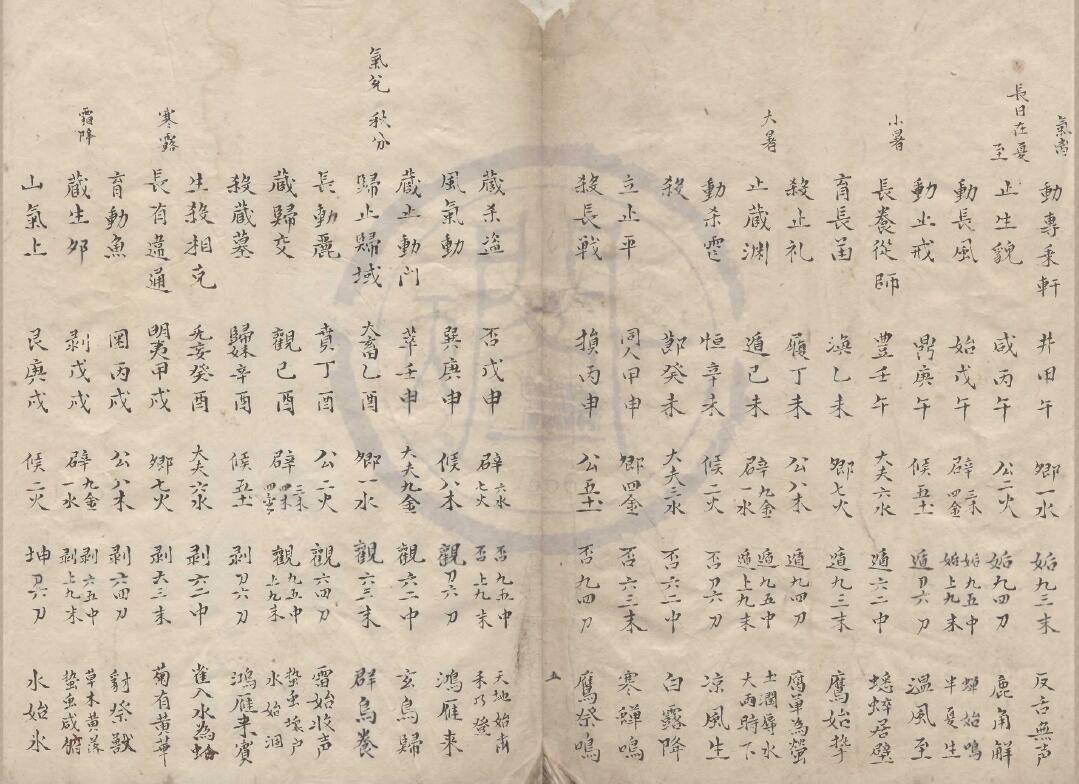 氣离
動專乘軒 井甲午 鄉一水 姤九三末 反舌無声
長日在夏至
止生貌 咸丙午 公二火 姤九四刀 鹿角解
動長風 姤戊午 辟三木四金 姤九五中姤上九末 蟬始鳴半夏生
動止戒 鼎庚午 候五土 遁刀六刀 温風至
小暑
長養從師 豐壬午 大夫六水 遁六二中 蟋蟀居壁
育長函 渙乙未 鄉七火 遁九三末 鷹始挚
殺止礼 履丁未 公八木 遁九四刀 腐草為螢
大暑
止藏渊 遁己未 辟九金一水 遁九五中遁上九末 土潤辱水大雨時下
動杀 恒辛未 候二火 否刀六刀 凉風生
殺 節癸未 大夫三水 否六二中 白露降
立止平 同人甲申 鄉四金 否六三末 寒蟬鳴
殺長戰 損丙申 公五土 否九四刀 鷹祭鳴
五
藏杀盗 否戊申 辟六水七火 否九五中否上九末 天地始肅禾乃登
風氣動 巽庚申 候八木 觀刀六刀 鴻雁来
藏止動門 萃壬申 大夫九金 觀六二中 玄鳥歸
氣兌 秋分
歸止歸域 大畜乙酉 鄉一水 觀六三末 群鳥養
長動麗 賁丁酉 公二火 觀六四刀 雷始收声
藏歸交 觀己酉 辟三木四 觀九五中觀上九末 蟄虫坯户水始涸
殺藏墓 歸妹辛酉 候五土 剥刀六刀 鴻雁来賓
生殺相克 无妄癸酉 大夫六水 剥六二中 雀入水為蛤
寒露
長有違通 明夷甲戌 鄉七火 剥六三末 菊有黄華
育動魚 困丙戌 公八木 剥六四刀 豺祭獸
霜降
藏生卯 剥戊戌 辟九金一水 剥六五中剥上九末 草木黄落蟄虫咸俯
山氣上 艮庚戌 候二火 坤刀六刀 水始氷